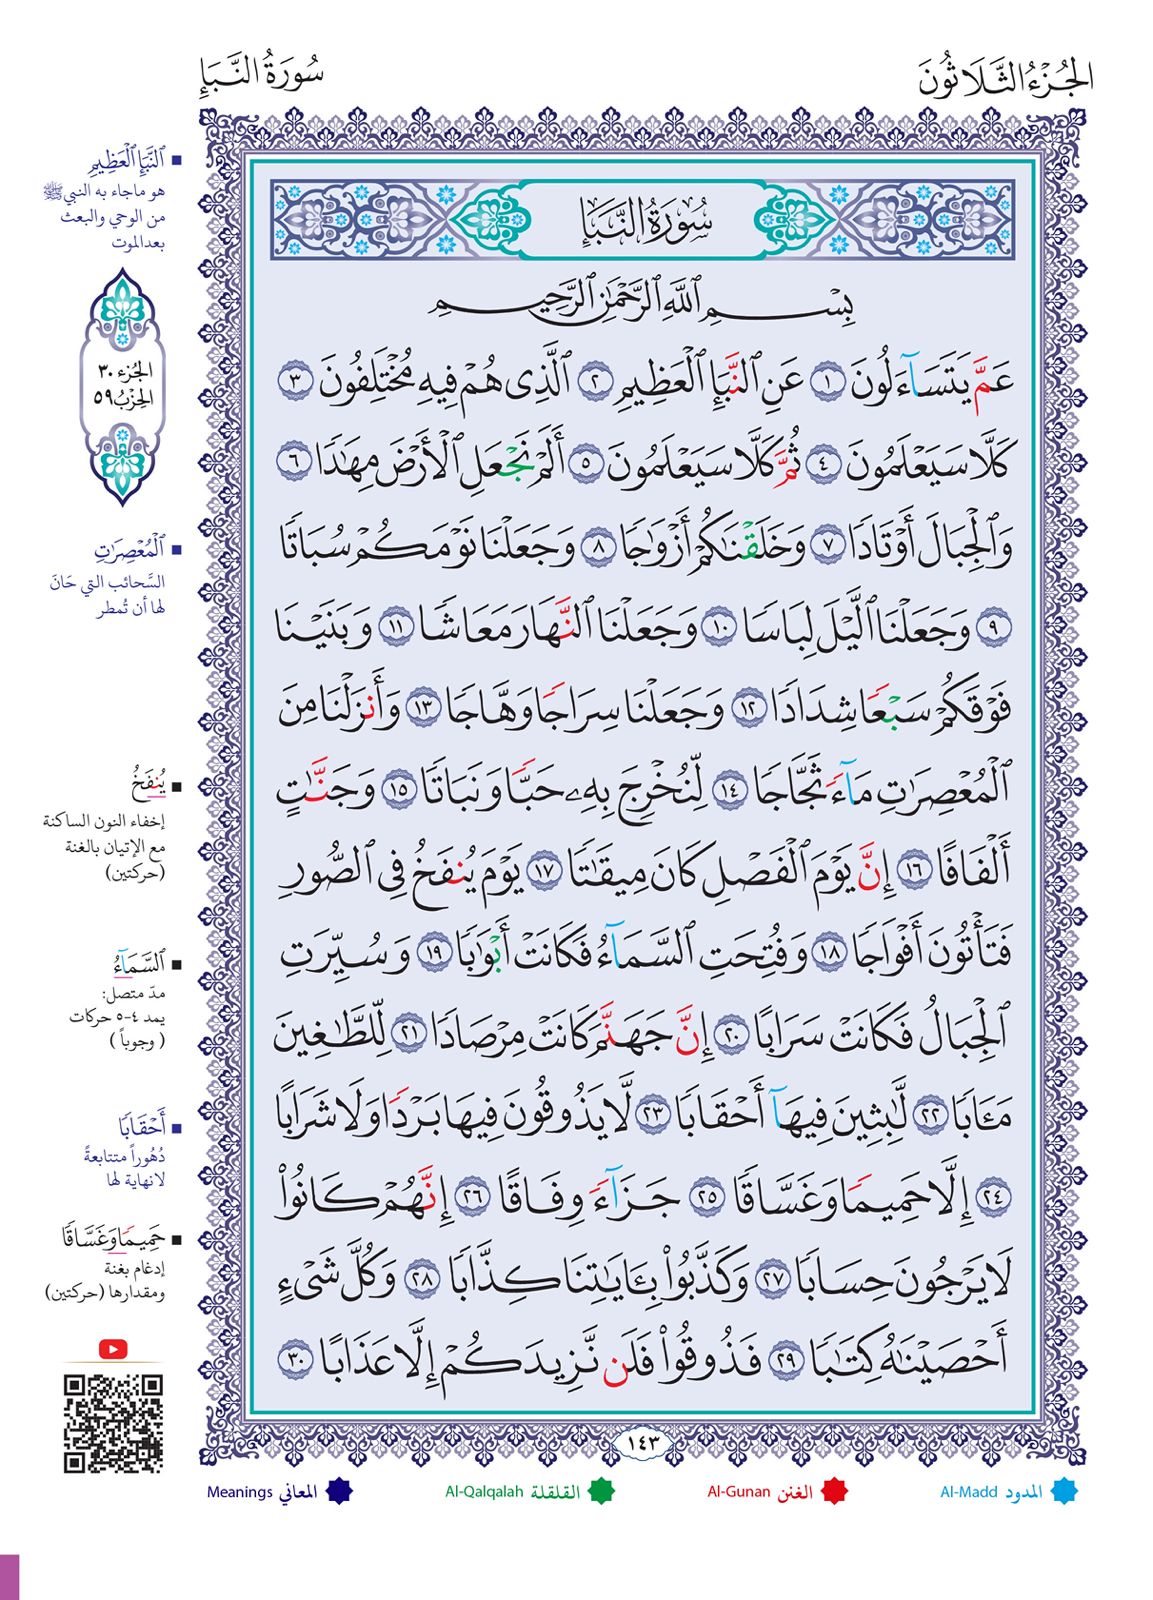 الجُزْءُ الثَّلَاثُونَ
سُورَةُ النَّبَإِ
سُورَةُ النَّبَإِ
بِسْمِ ٱللَّهِ ٱلرَّحْمَٰنِ ٱلرَّحِيمِ
عَمَّ يَتَسَآءَلُونَ ١ عَنِ ٱلنَّبَإِ ٱلْعَظِيمِ ٢ ٱلَّذِى هُمْ فِيهِ مُخْتَلِفُونَ ٣
كَلَّا سَيَعْلَمُونَ ٤ ثُمَّ كَلَّا سَيَعْلَمُونَ ٥ أَلَمْ نَجْعَلِ ٱلْأَرْضَ مِهَٰدًا ٦
وَٱلْجِبَالَ أَوْتَادًا ٧ وَخَلَقْنَٰكُمْ أَزْوَٰجًا ٨ وَجَعَلْنَا نَوْمَكُمْ سُبَاتًا
٩ وَجَعَلْنَا ٱلَّيْلَ لِبَاسًا ١٠ وَجَعَلْنَا ٱلنَّهَارَ مَعَاشًا ١١ وَبَنَيْنَا
فَوْقَكُمْ سَبْعًا شِدَادًا ١٢ وَجَعَلْنَا سِرَاجًا وَهَّاجًا ١٣ وَأَنزَلْنَا مِنَ
ٱلْمُعْصِرَٰتِ مَآءً ثَجَّاجًا ١٤ لِّنُخْرِجَ بِهِۦ حَبًّا وَنَبَاتًا ١٥ وَجَنَّٰتٍ
أَلْفَافًا ١٦ إِنَّ يَوْمَ ٱلْفَصْلِ كَانَ مِيقَٰتًا ١٧ يَوْمَ يُنفَخُ فِى ٱلصُّورِ
فَتَأْتُونَ أَفْوَاجًا ١٨ وَفُتِحَتِ ٱلسَّمَآءُ فَكَانَتْ أَبْوَٰبًا ١٩ وَسُيِّرَتِ
ٱلْجِبَالُ فَكَانَتْ سَرَابًا ٢٠ إِنَّ جَهَنَّمَ كَانَتْ مِرْصَادًا ٢١ لِّلطَّٰغِينَ
مَـَٔابًا ٢٢ لَّٰبِثِينَ فِيهَآ أَحْقَابًا ٢٣ لَّا يَذُوقُونَ فِيهَا بَرْدًا وَلَا شَرَابًا
٢٤ إِلَّا حَمِيمًا وَغَسَّاقًا ٢٥ جَزَآءً وِفَاقًا ٢٦ إِنَّهُمْ كَانُوا۟
لَا يَرْجُونَ حِسَابًا ٢٧ وَكَذَّبُوا۟ بِـَٔايَٰتِنَا كِذَّابًا ٢٨ وَكُلَّ شَىْءٍ
أَحْصَيْنَٰهُ كِتَٰبًا ٢٩ فَذُوقُوا۟ فَلَن نَّزِيدَكُمْ إِلَّا عَذَابًا ٣٠
١٤٣
ٱلنَّبَإِ ٱلْعَظِيمِ
هو ماجاء به النبي ﷺ
من الوحي والبعث
بعد الموت
الجُزء ٣٠
الحِزْبُ ٥٩
ٱلْمُعْصِرَٰتِ
السَّحائب التي حَانَ
لها أن تُمطر
يُنفَخُ
إخفاء النون الساكنة
مع الإتيان بالغنة
(حركتين)
ٱلسَّمَآءُ
مدّ متصل:
يمد ٤-٥ حركات
( وجوباً )
أَحْقَابًا
دُهُوراً متتابعةً
لا نهاية لها
حَمِيمًا وَغَسَّاقًا
إدغام بغنة
ومقدارها (حركتين)
المدود Al-Madd
الغنن Al-Gunan
القلقلة Al-Qalqalah
المعاني Meanings